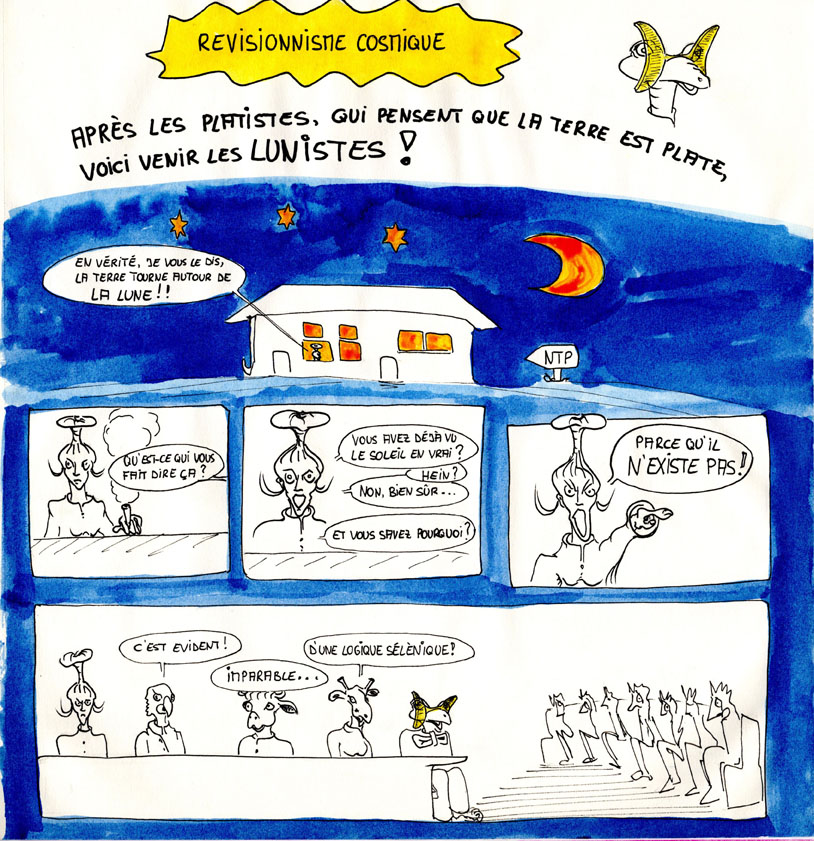 REVISIONNISME COSMIQUE
APRÈS LES PLATISTES, QUI PENSENT QUE LA TERRE EST PLATE,
VOICI VENIR LES LUNISTES !
EN VÉRITÉ, JE VOUS LE DIS,
LA TERRE TOURNE AUTOUR DE
LA LUNE !!
NTP
QU'EST-CE QUI VOUS
FAIT DIRE ÇA ?
VOUS AVEZ DÉJÀ VU
LE SOLEIL EN VRAI ?
HEIN ?
NON, BIEN SÛR...
ET VOUS SAVEZ POURQUOI ?
PARCE QU'IL
N'EXISTE PAS !!
C'EST EVIDENT !
IMPARABLE...
D'UNE LOGIQUE SÉLÈNIQUE !